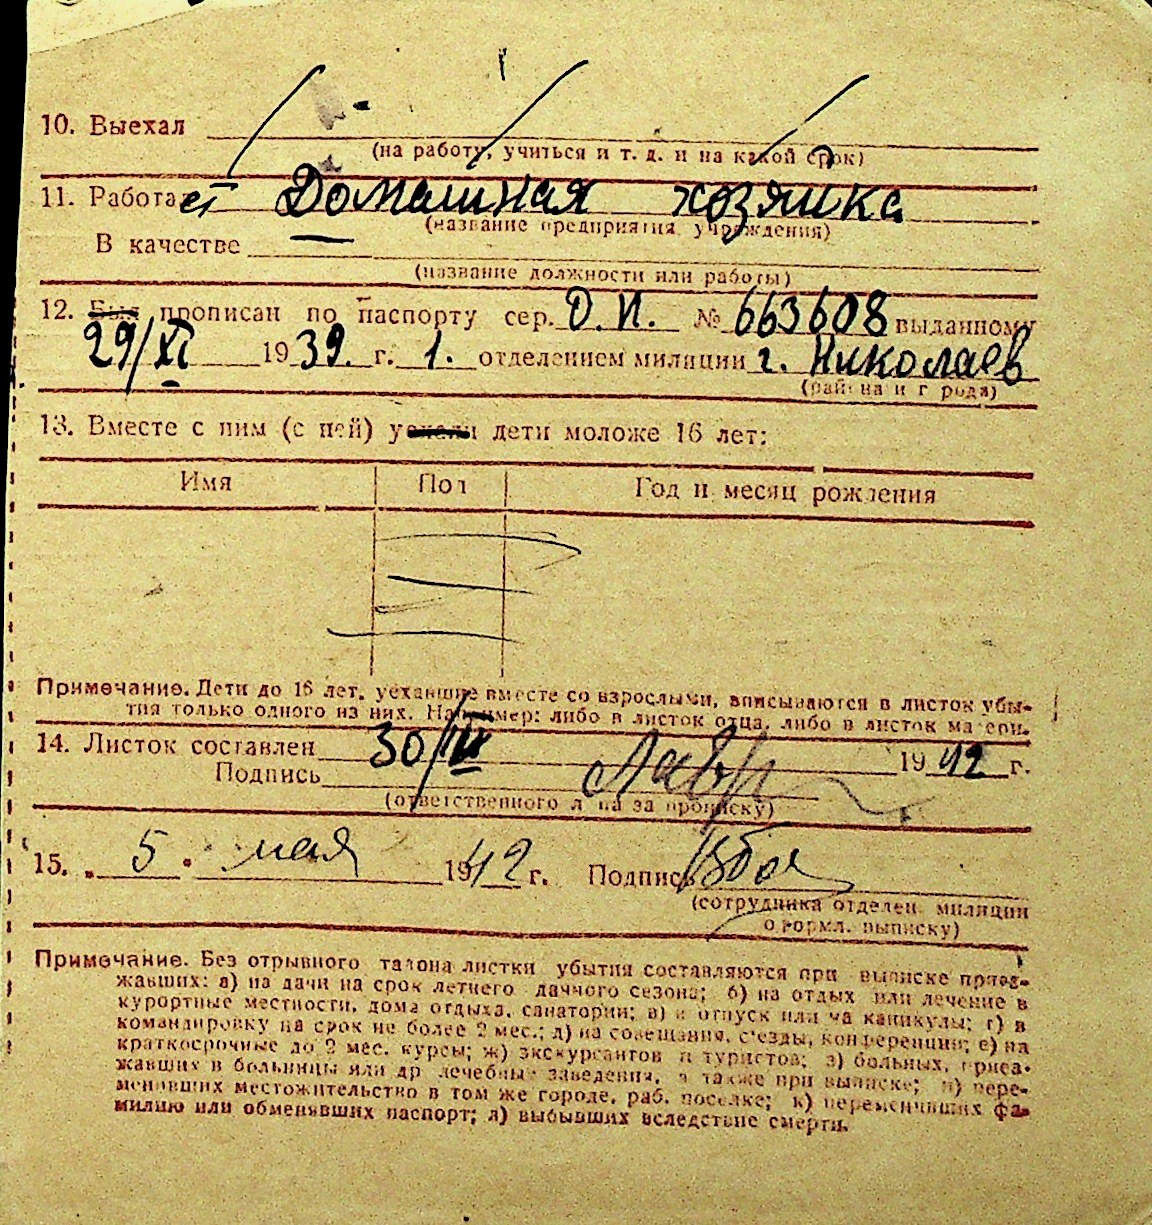 10. Выехал
(на работу, учиться и т. д. и на какой срок)
11. Работает Домашная хозяйка
(название предприятия учреждения)
В качестве —
(название должности или работы)
12. Был прописан по паспорту сер. О.И. № 663608 выданному
29/XI 1939. г. 1. отделением милиции г. Николаев
(района и города)
13. Вместе с ним (с ней) уехали дети моложе 16 лет:
Имя Пол Год и месяц рождения
Примечание. Дети до 16 лет, уехавшие вместе со взрослыми, вписываются в листок убы-
тия только одного из них. Например: либо в листок отца, либо в листок матери.
14. Листок составлен 30/IV 1942 г.
Подпись
(ответственного лица за прописку)
15. „ 5 " мая 1942 г. Подпись
(сотрудника отделен. милиции
оформл. выписку)
Примечание. Без отрывного талона листки убытия составляются при выписке приез-
жавших: а) на дачи на срок летнего дачного сезона; б) на отдых или лечение в
курортные местности, дома отдыха, санатории; в) в отпуск или на каникулы; г) в
командировку на срок не более 2 мес.; д) на совещания, съезды, конференции; е) на
краткосрочные до 2 мес. курсы; ж) экскурсантов и туристов; з) больных, приез-
жавших в больницы или др лечебные заведения, а также при выписке; и) пере-
менивших местожительство в том же городе, раб. поселке; к) переменивших фа-
милию или обменявших паспорт; л) выбывших вследствие смерти.